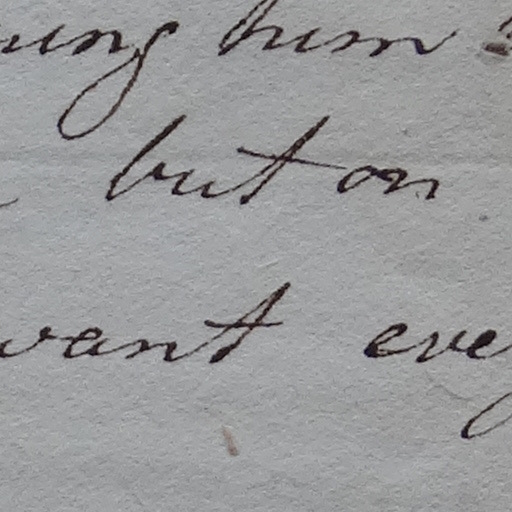 ung him
but on
want eve